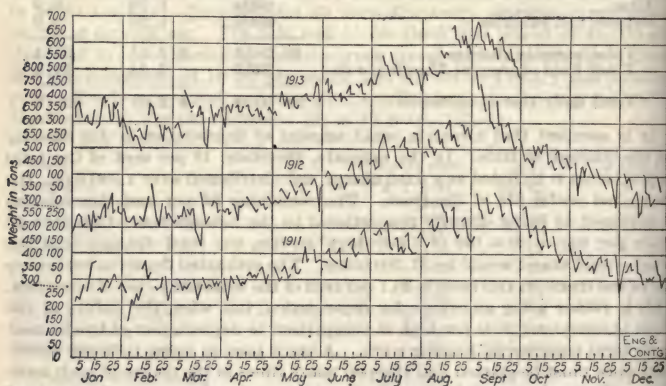 700
650
600
550
800 500
750 450
700 400
650 350
600 300
550 250
500 200
450 150
400 100
350 50
300 0
550
500
450
400
350 50
300 0
250
200
150
100
50
0
Weight in Tons
1913
1912
1911
ENG &
CONTG
5 15 25 5 15 25 5 15 25 5 15 25 5 15 25 5 15 25 5 15 25 5 15 25 5 15 25 5 15 25 5 15 25 5 15 25
Jan Feb. Mar. Apr. May June July Aug. Sept Oct Nov. Dec.